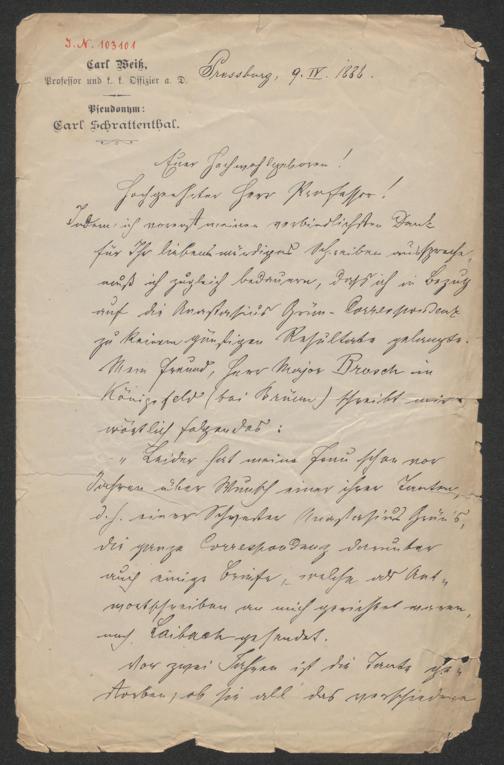 J. N. 103101
Carl Weiß,
Professor und k. k. Offizier a. D.
Pseudonym:
Carl Schrattenthal.
Pressburg, 9. IV. 1886.
Euer Hochwohlgeboren!
Hochgeehrter Herr Professor!
Indem ich vorerst meinen verbindlichsten Dank
für Ihr liebenswürdiges Schreiben ausspreche,
muß ich zugleich bedauern, dass ich in Bezug
auf die Anastasius Grün-Correspondenz
zu keinem günstigen Resultate gelangte.
Mein Freund, Herr Major Brosch in
Königsfeld (bei Brünn) schreibt mir
wörtlich folgendes:
„Leider hat meine Frau schon vor
Jahren über Wunsch einer ihrer Tanten,
d. h. einer Schwester Anastasius Grün's,
die ganze Correspondenz darunter
auch einige Briefe, welche als Ant-
wortschreiben an mich gerichtet waren,
nach Laibach gesendet.
Vor zwei Jahren ist die Tante ge-
storben, ob sie all' das verschiedene